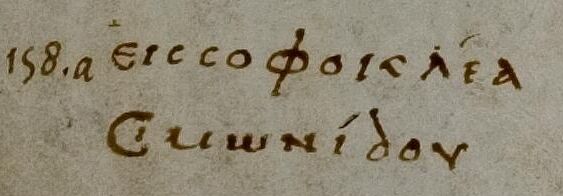 158.a εις σοφοικλέα
Σιμωνίδου